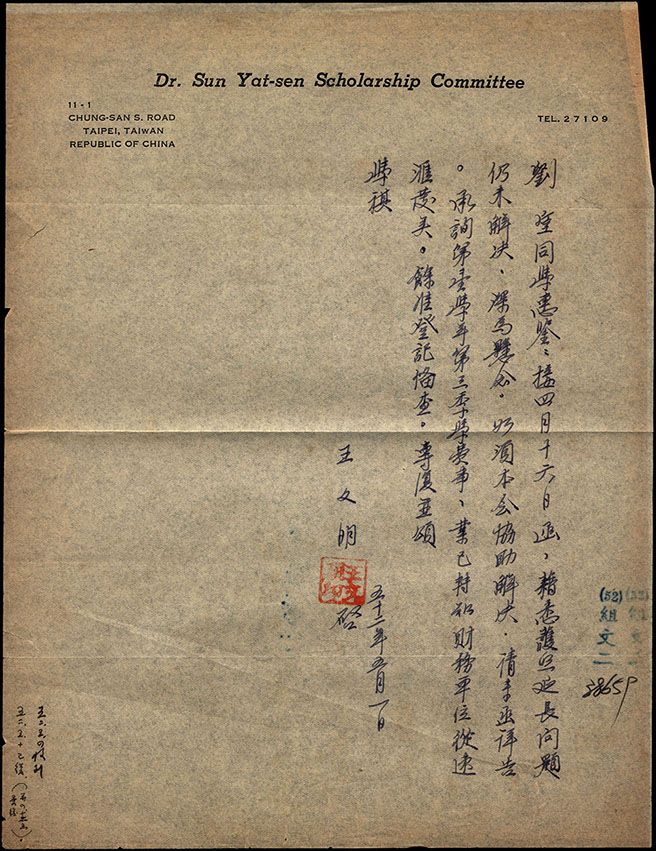 Dr. Sun Yat-sen Scholarship Committee
11-1
CHUNG-SAN S. ROAD
TAIPEI, TAIWAN
REPUBLIC OF CHINA
TEL. 27109
劉 同學惠鑒：接四月十六日函，藉悉護照延長問題
仍未解決，深為懸念。如須本会協助解決，請来函詳告
。承詢第壹學年第三季學費事，業已轉知財務單位從速
滙發矣。餘准登記俻查。專復並頌
學祺
王文明
啓
五十二年五月一日
(52)
組文二
38659